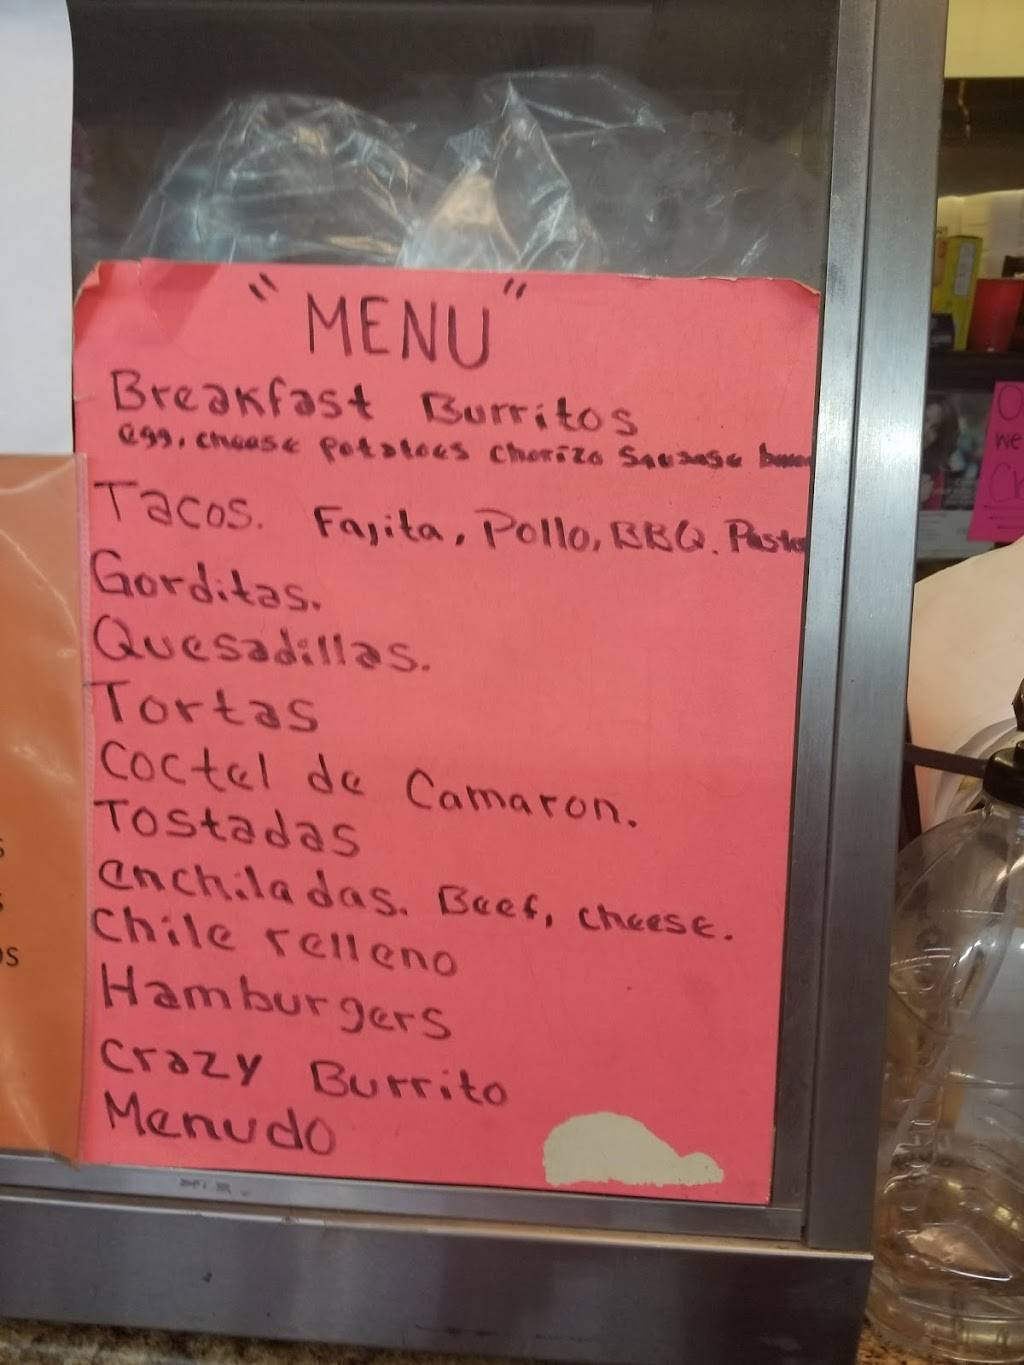 "MENU"
Breakfast Burritos
egg, cheese potatoes Chorizo Sausage
Tacos. Fajita, Pollo, BBQ. Pastor
Gorditas.
Quesadillas.
Tortas
Coctel de Camaron.
Tostadas
enchiladas. Beef, cheese.
Chile relleno
Hamburgers
Crazy Burrito
Menudo
we